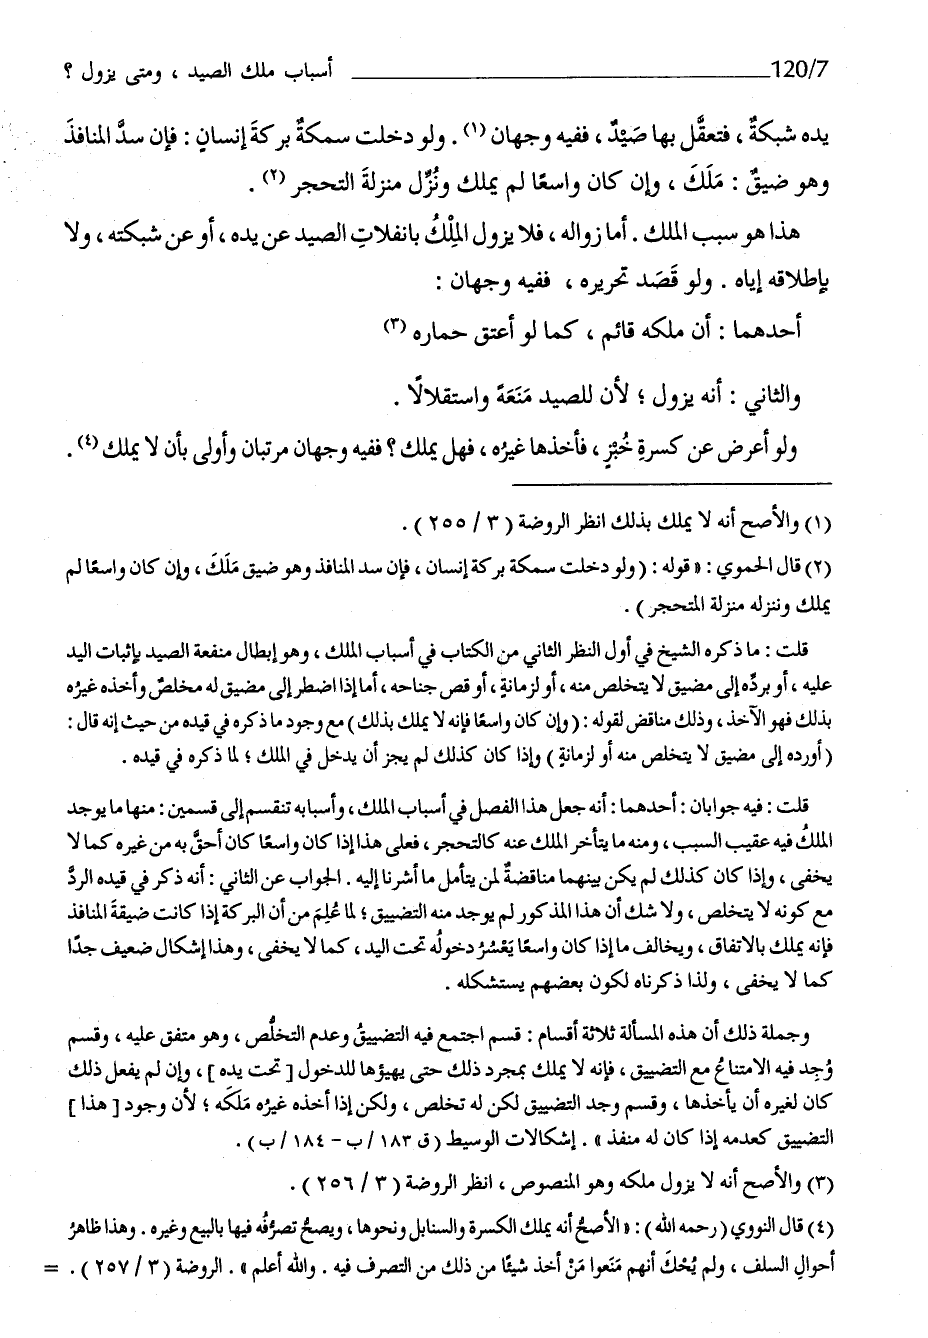 120/7 ــــــــــــــــ أسباب ملك الصيد ، ومتى يزول ؟
يده شبكةٌ ، فتعقَّل بها صَيْدٌ ، ففيه وجهان (١) . ولو دخلت سمكةٌ بركةَ إنسانٍ : فإن سدَّ المنافذَ
وهو ضيقٌ : مَلَكَ ، وإن كان واسعًا لم يملك ونُزِّل منزلةَ التحجر (٢) .
هذا هو سبب الملك . أما زواله ، فلا يزول المِلْكُ بانفلاتِ الصيد عن يده ، أو عن شبكته ، ولا
بإطلاقه إياه . ولو قَصَد تحريره ، ففيه وجهان :
أحدهما : أن ملكه قائم ، كما لو أعتق حماره (٣)
والثاني : أنه يزول ؛ لأن للصيد مَنَعَةً واستقلالًا .
ولو أعرض عن كسرةِ خُبْزٍ ، فأخذها غيرُه ، فهل يملك ؟ ففيه وجهان مرتبان وأولى بأن لا يملك (٤) .
(١) والأصح أنه لا يملك بذلك انظر الروضة ( ٣ / ٢٥٥ ) .
(٢) قال الحموي : « قوله : ( ولو دخلت سمكة بركة إنسان ، فإن سد المنافذ وهو ضيق مَلَكَ ، وإن كان واسعًا لم
يملك وننزله منزلة المتحجر ) .
قلت : ما ذكره الشيخ في أول النظر الثاني من الكتاب في أسباب الملك ، وهو إبطال منفعة الصيد بإثبات اليد
عليه ، أو بردِّه إلى مضيق لا يتخلص منه ، أو لزمانةٍ ، أو قص جناحه ، أما إذا اضطر إلى مضيق له مخلصٌ وأخذه غيرُه
بذلك فهو الآخذ ، وذلك مناقض لقوله : ( وإن كان واسعًا فإنه لا يملك بذلك ) مع وجود ما ذكره في قيده من حيث إنه قال :
( أورده إلى مضيق لا يتخلص منه أو لزمانةٍ ) وإذا كان كذلك لم يجز أن يدخل في الملك ؛ لما ذكره في قيده .
قلت : فيه جوابان : أحدهما : أنه جعل هذا الفصل في أسباب الملك ، وأسبابه تنقسم إلى قسمين : منها ما يوجد
الملكُ فيه عقيب السبب ، ومنه ما يتأخر الملك عنه كالتحجر ، فعلى هذا إذا كان واسعًا كان أحقَّ به من غيره كما لا
يخفى ، وإذا كان كذلك لم يكن بينهما مناقضةٌ لمن يتأمل ما أشرنا إليه . الجواب عن الثاني : أنه ذكر في قيده الردَّ
مع كونه لا يتخلص ، ولا شك أن هذا المذكور لم يوجد منه التضييق ؛ لما عُلِمَ من أن البركة إذا كانت ضيقةَ المنافذ
فإنه يملك بالاتفاق ، ويخالف ما إذا كان واسعًا يَعْسُرُ دخولُه تحت اليد ، كما لا يخفى ، وهذا إشكال ضعيف جدًا
كما لا يخفى ، ولذا ذكرناه لكون بعضهم يستشكله .
وجملة ذلك أن هذه المسألة ثلاثة أقسام : قسم اجتمع فيه التضييقُ وعدم التخلُّص ، وهو متفق عليه ، وقسم
وُجِد فيه الامتناعُ مع التضييق ، فإنه لا يملك بمجرد ذلك حتى يهيؤها للدخول [ تحت يده ] ، وإن لم يفعل ذلك
كان لغيره أن يأخذها ، وقسم وجد التضييق لكن له تخلص ، ولكن إذا أخذه غيرُه مَلَكَه ؛ لأن وجود [ هذا ]
التضييق كعدمه إذا كان له منفذ » . إشكالات الوسيط ( ق ١٨٣ / ب - ١٨٤ / ب ) .
(٣) والأصح أنه لا يزول ملكه وهو المنصوص ، انظر الروضة ( ٣ / ٢٥٦ ) .
(٤) قال النووي ( رحمه الله ) : « الأصحُّ أنه يملك الكسرة والسنابل ونحوها ، ويصحُّ تصرُّفُه فيها بالبيع وغيره . وهذا ظاهرُ
أحوالِ السلف ، ولم يُحْكَ أنهم مَنَعوا مَنْ أخذ شيئًا من ذلك من التصرف فيه . والله أعلم » . الروضة ( ٣ / ٢٥٧ ) . =